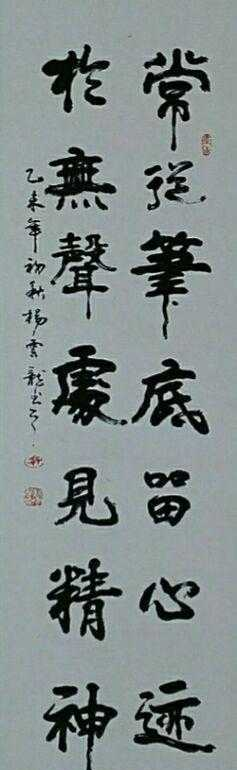 常從筆底留心迹
於無聲處見精神
乙未年初秋楊雲龍書